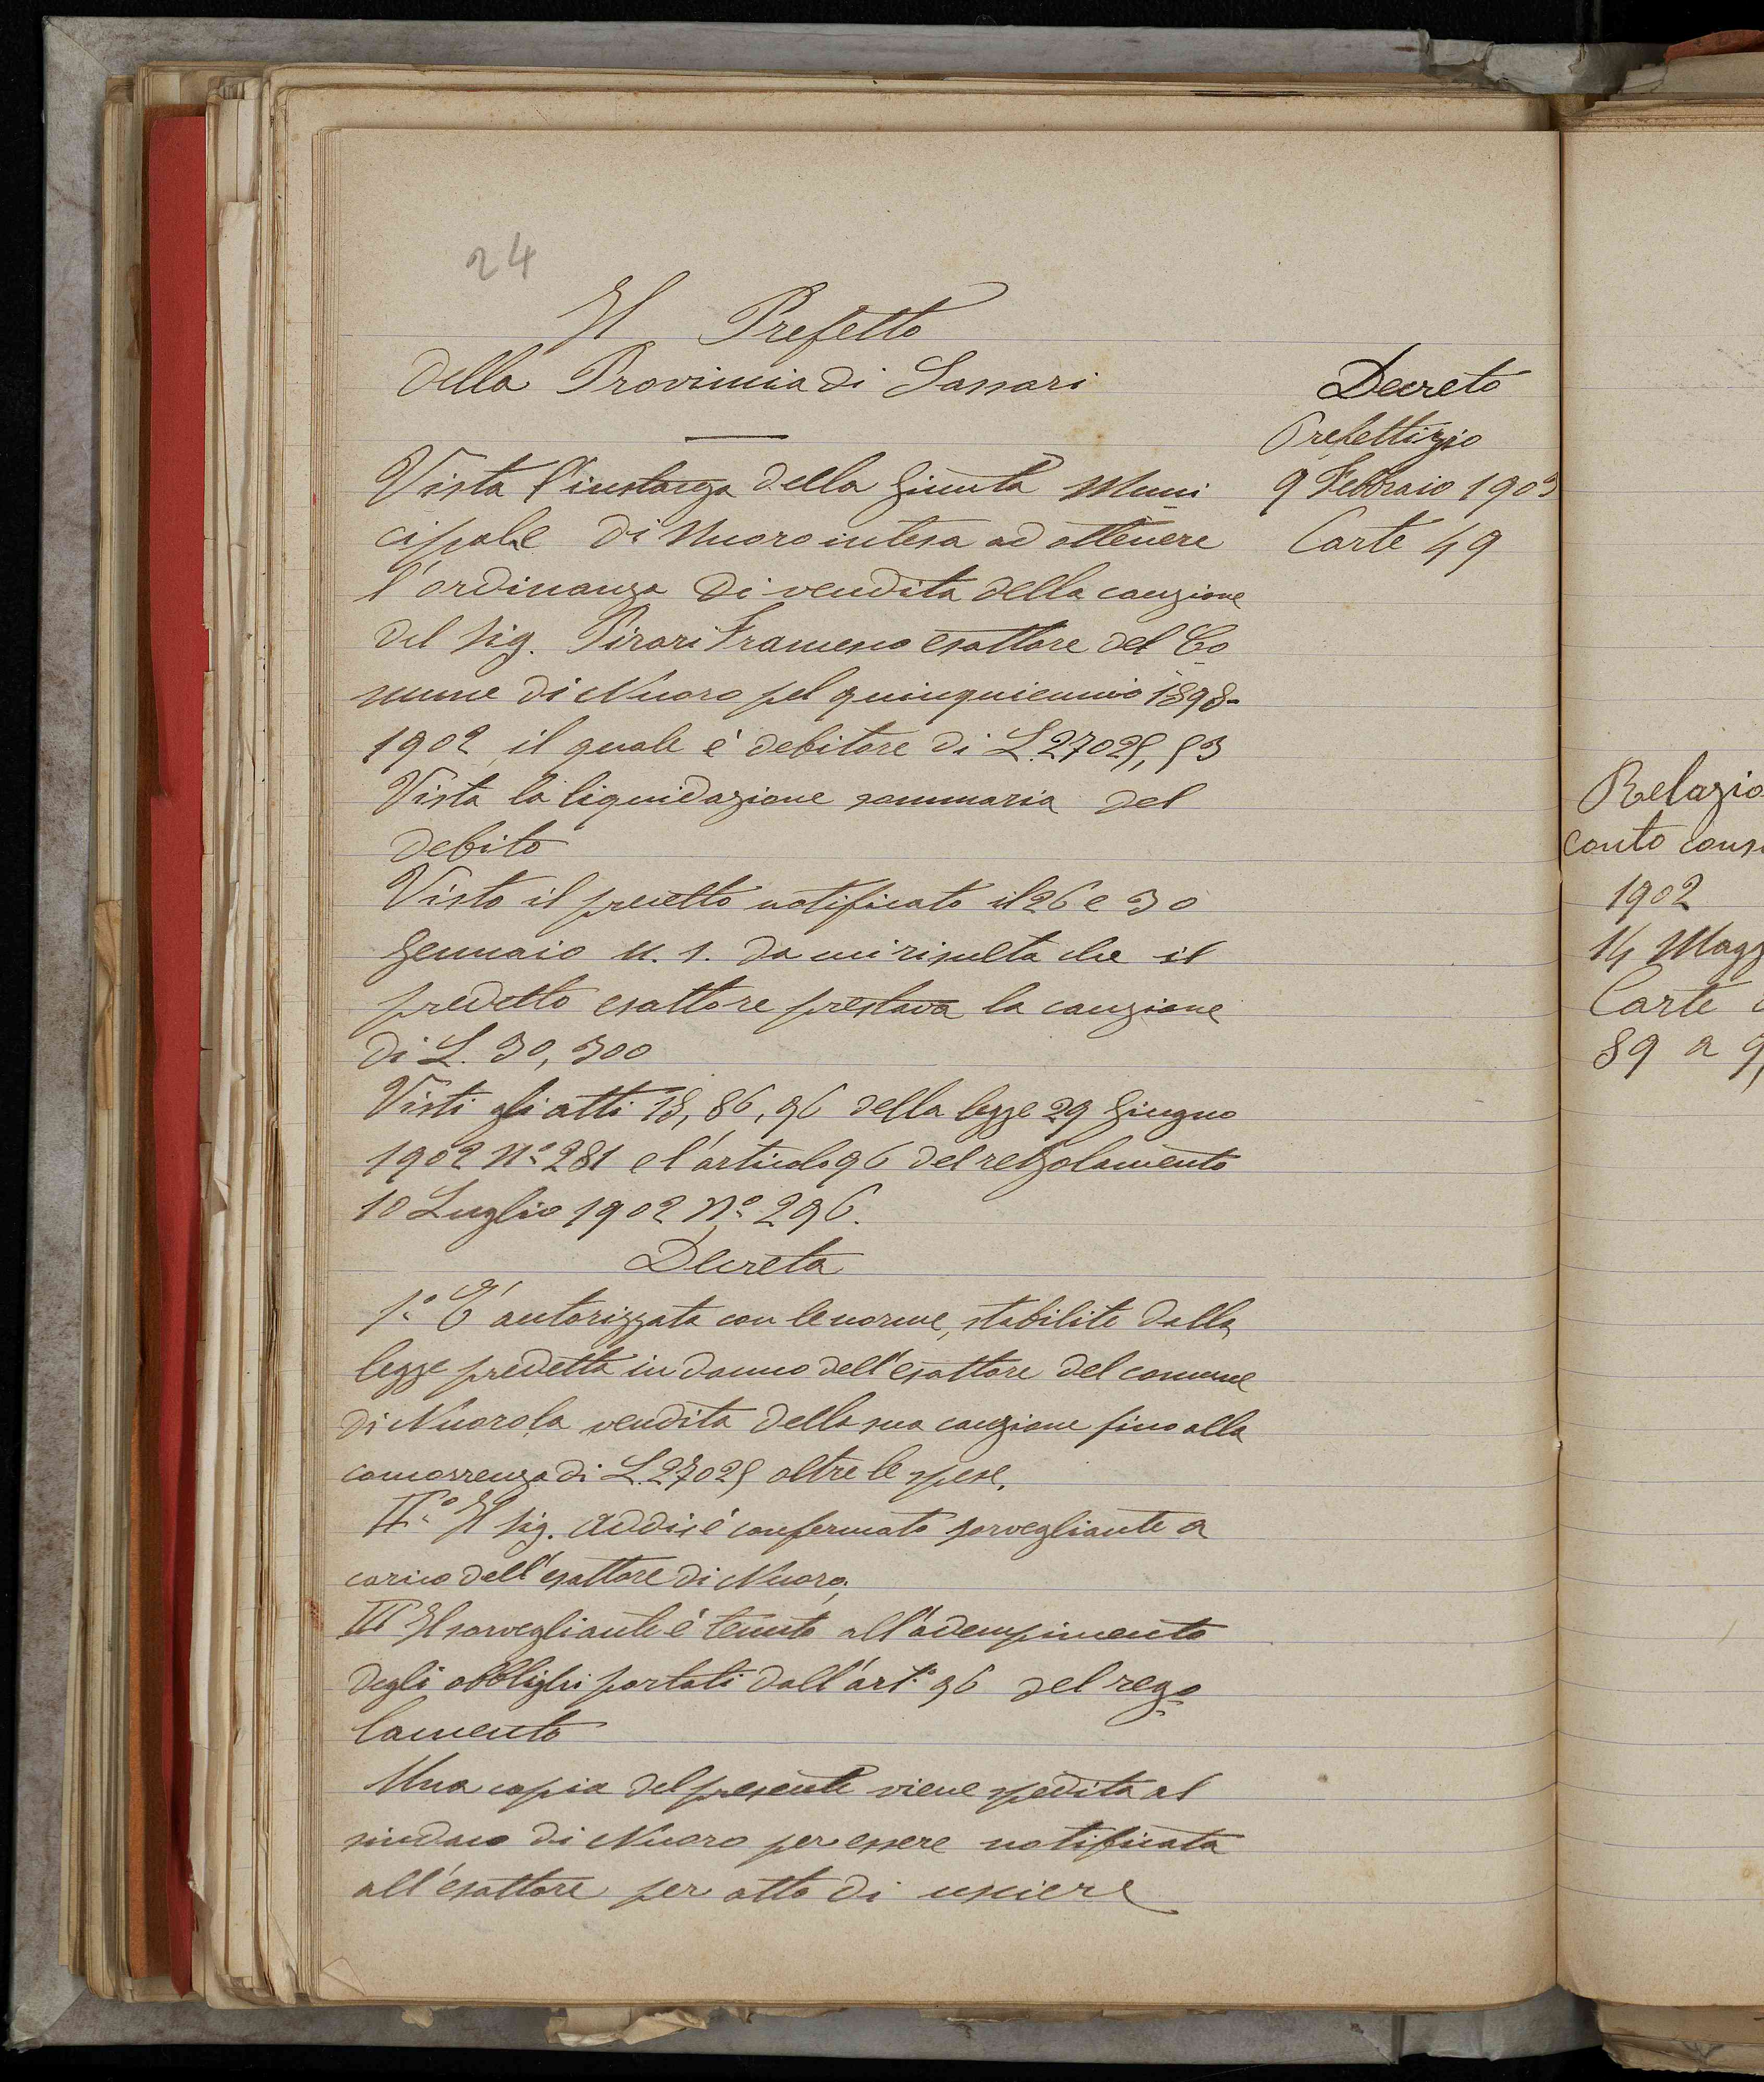 24
Il Prefetto
della Provincia di Sassari
Decreto
Prefettizio
9 Febbraio 1903
Carte 49
Vista l'instanza della Giunta Muni
cipale di Nuoro intesa ad ottenere
l'ordinanza di vendita della cauzione
del Sig. Pirari Francesco esattore del Co
mune di Nuoro pel quinquiennio 1898-
1902, il quale è debitore di L. 27025,53
Vista la liquidazione sommaria del
debito
Visto il precetto notificato il 26 e 30
Gennaio u. s. da cui risulta che il
predetto esattore prestava la cauzione
di L. 30,300
Visti gli atti 18, 86, 96 della legge 29 Giugno
1902 N.º 281 e l'articolo 96 del regolamento
10 Luglio 1902 N.º 296.
Decreta
1.º È autorizzata con le norme, stabilite dalla
legge predetta in danno dell'esattore del comune
di Nuoro la vendita della sua cauzione fino alla
concorrenza di L. 27025 oltre le spese.
II.º Il Sig. Addis è confermato sorvegliante a
carico dell'esattore di Nuoro.
III Il sorvegliante è tenuto all'adempimento
degli obblighi portati dall'art.º 96 del rego
lamento
Una copia del presente viene spedita al
sindaco di Nuoro per essere notificata
all'esattore per atto di usciere
Relazio
conto cons
1902
14 Magg
Carte
89 a 9